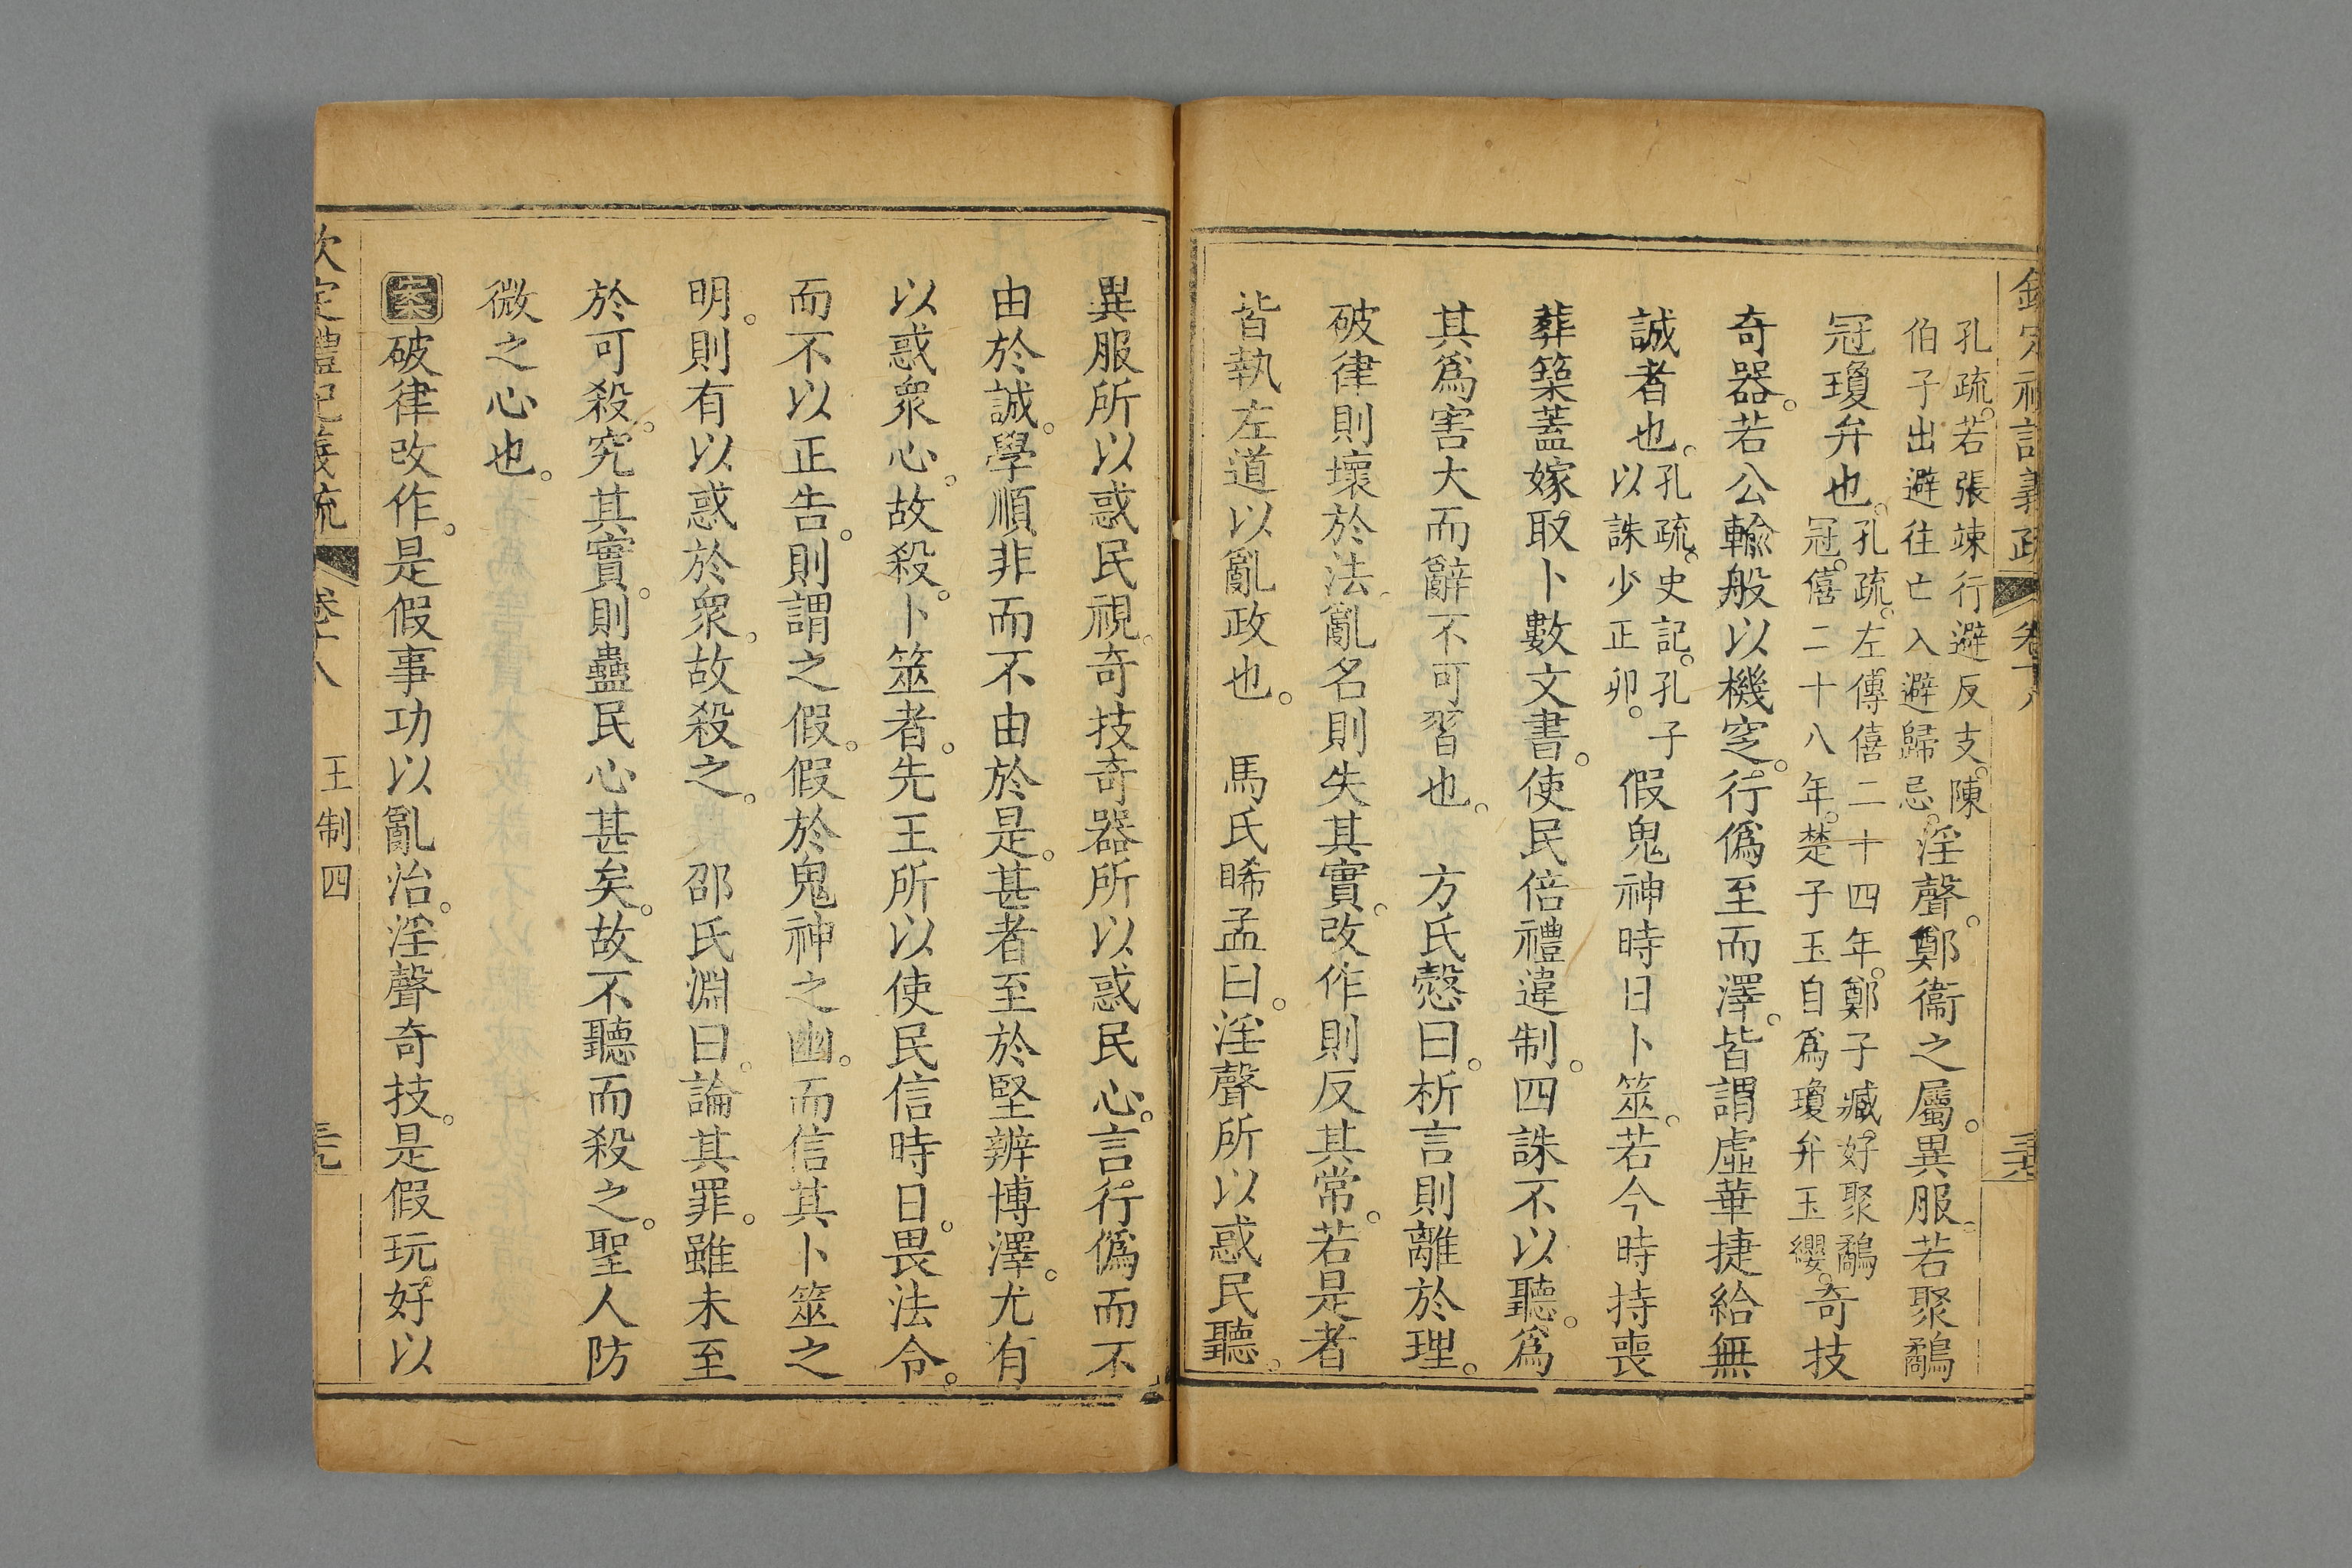 欽定禮記義疏 卷十八
孔疏。若張竦行避反支。陳
伯子出避往亡入避歸忌。淫聲。鄭衞之屬。異服。若聚鷸
冠瓊弁也。孔疏。左傳僖二十四年。鄭子臧好聚鷸
冠。僖二十八年。楚子玉自爲瓊弁玉纓。奇技
奇器。若公輸般以機窆。行僞至而澤。皆謂虛華捷給無
誠者也。孔疏。史記。孔子
以誅少正卯。假鬼神時日卜筮。若今時持喪
葬築蓋嫁取卜數文書。使民倍禮違制。四誅不以聽。爲
其爲害大而辭不可習也。　方氏慤曰。析言則離於理。
破律則壞於法。亂名則失其實。改作則反其常。若是者
皆執左道以亂政也。　馬氏睎孟曰。淫聲所以惑民聽。
異服所以惑民視。奇技奇器所以惑民心。言行僞而不
由於誠。學順非而不由於是。甚者至於堅辨博澤。尤有
以惑衆心。故殺。卜筮者。先王所以使民信時日。畏法令。
而不以正告。則謂之假。假於鬼神之幽。而信其卜筮之
明。則有以惑於衆。故殺之。　邵氏淵曰。論其罪。雖未至
於可殺。究其實。則蠱民心甚矣。故不聽而殺之。聖人防
微之心也。
案破律改作。是假事功以亂治。淫聲奇技。是假玩好以
欽定禮記義疏 卷十八 王制四